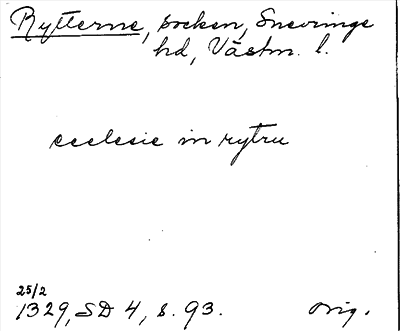 Rytterne, socken, Snevringe
hd, Västm. l.
ecclesie in rytru
25/2
1329, SD 4, s. 93. orig.